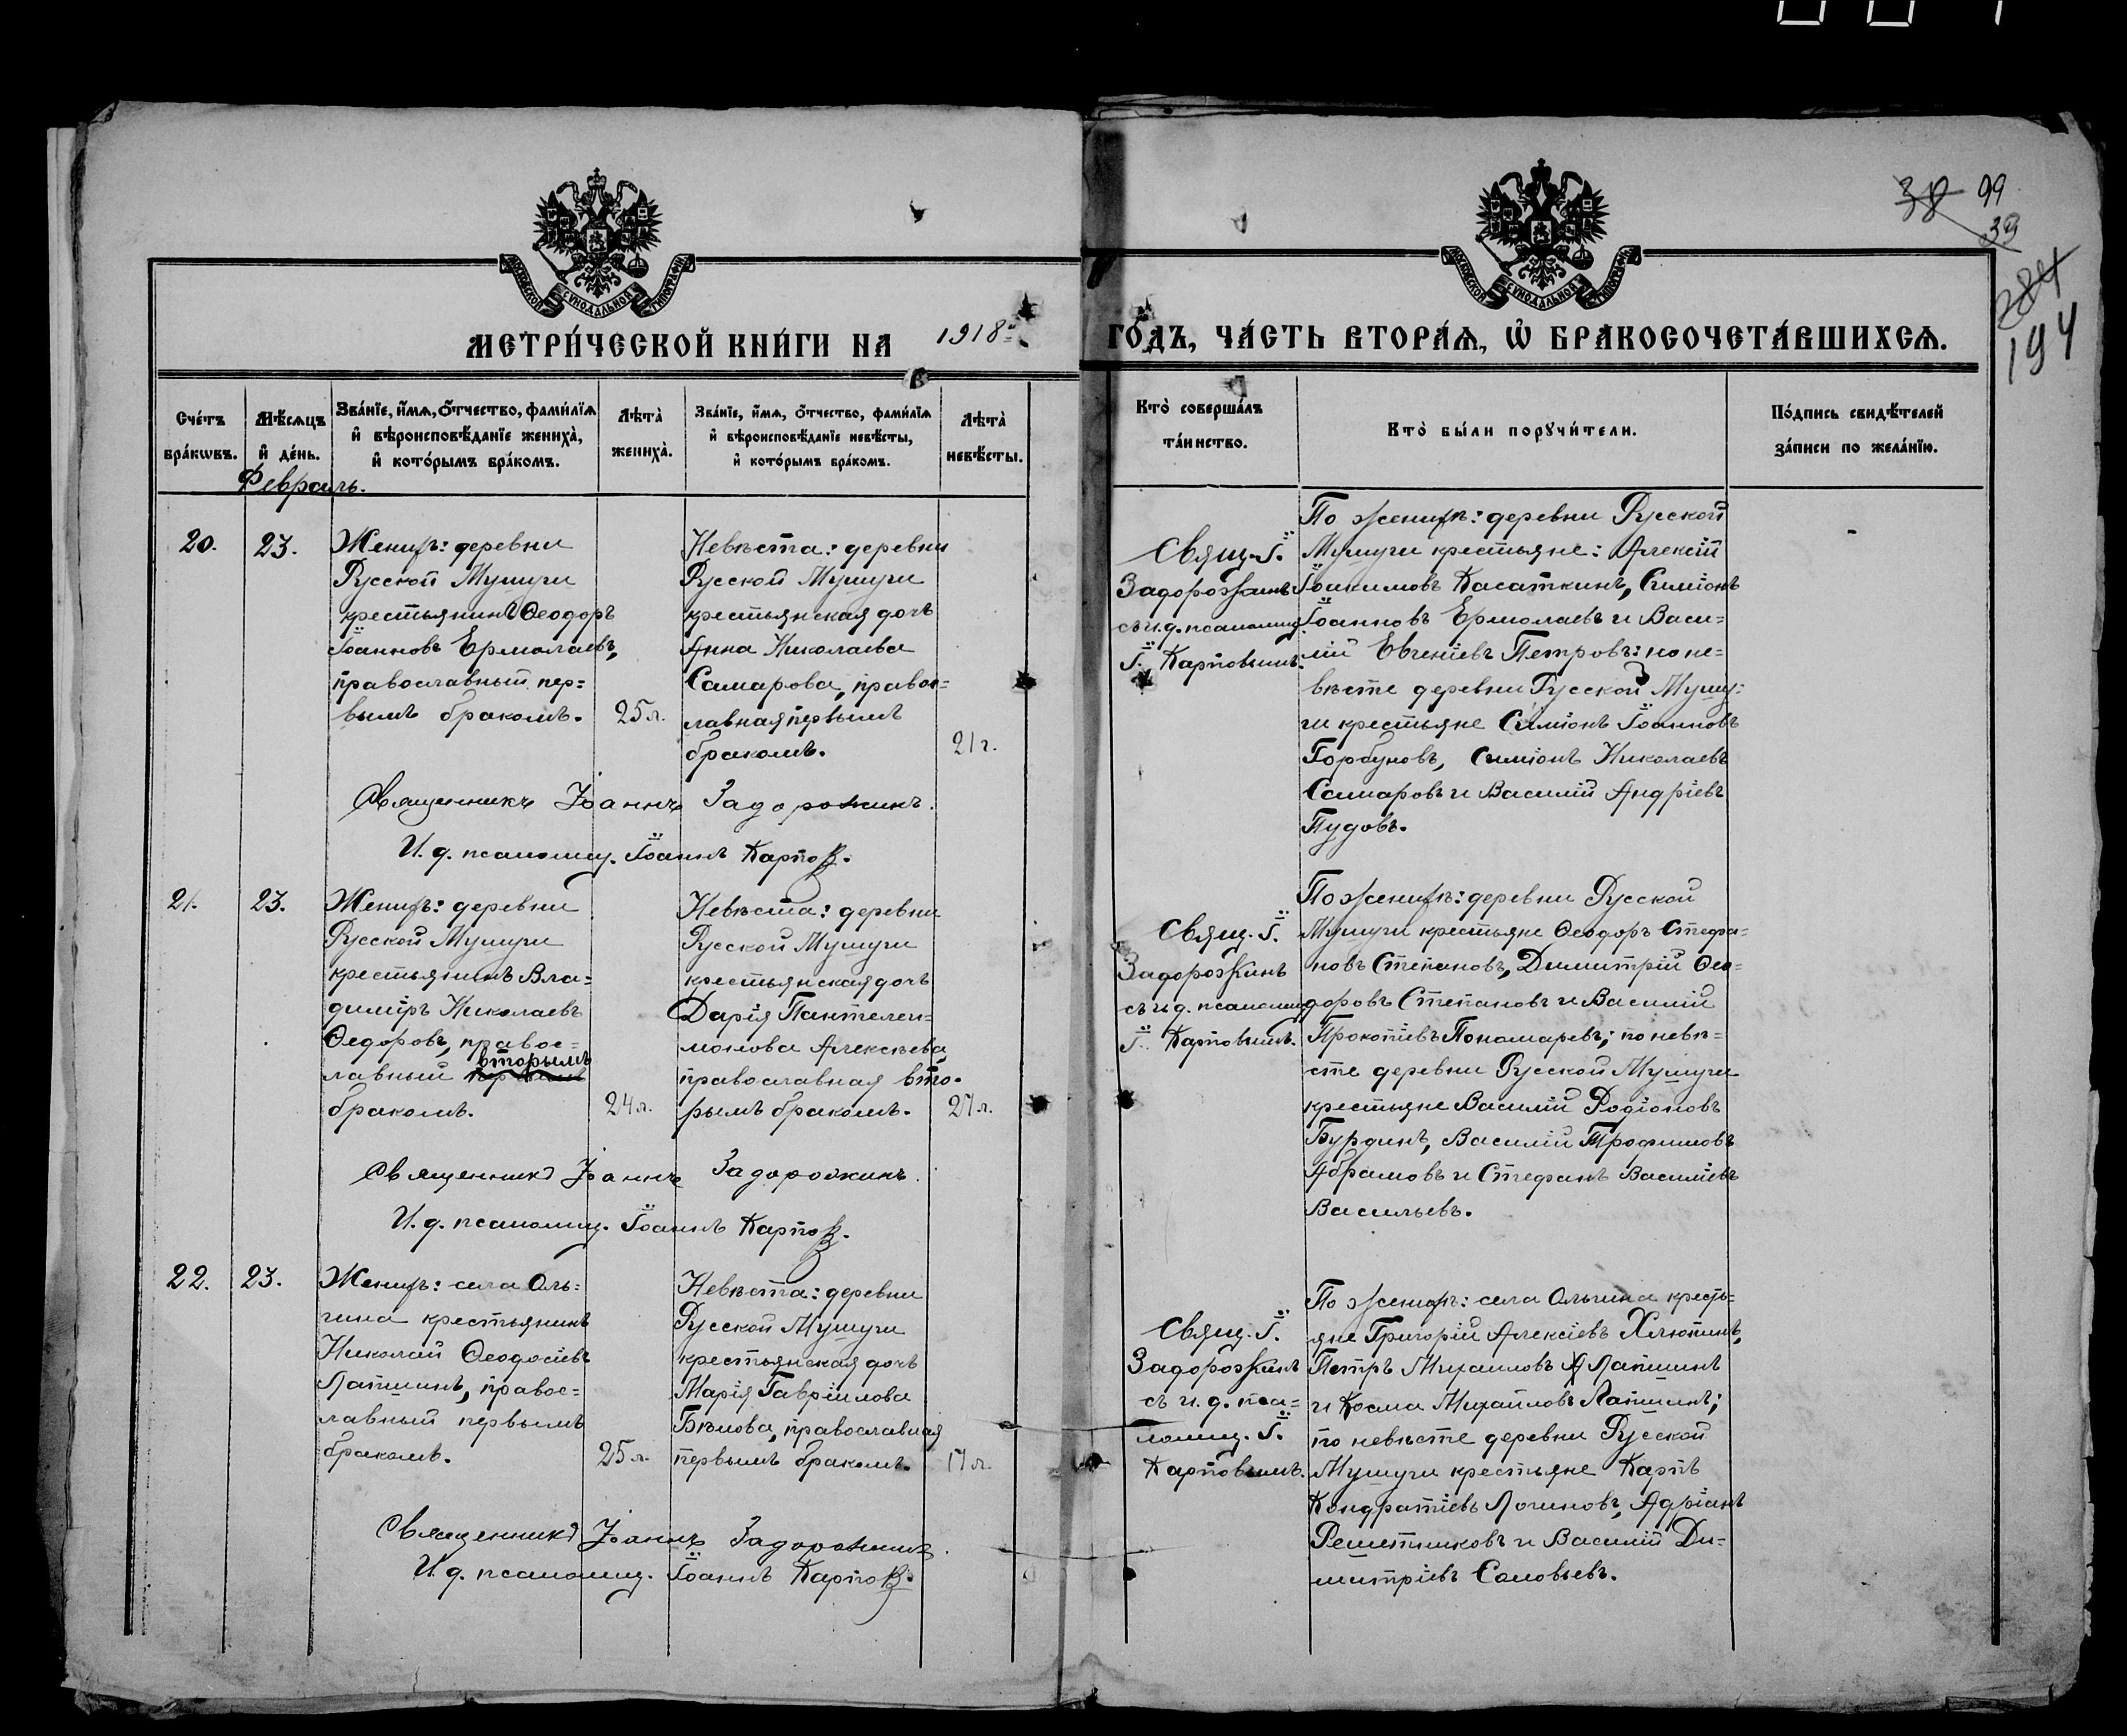 38 99
39
284
194
МОСКОВСКОЙ СѴНОДАЛЬНОЙ ТИПОГРАФІИ
МОСКОВСКОЙ СѴНОДАЛЬНОЙ ТИПОГРАФІИ
МЕТРИ́ЧЕСКОЙ КНИ́ГИ НА 1918й
ГО́ДЪ, ЧА́СТЬ ВТОРА́Ѧ, Ѽ БРАКОСОЧЕТА́ВШИХСѦ.
Сче́тъ
бра́кѡвъ.
Мѣ́сѧцъ
и҆ де́нь.
Зва́нїе, и҆́мѧ, ѻ҆́тчество, фами́лїѧ
и҆ вѣроисповѣ́данїе жениха̀,
и҆ кото́рымъ бра́комъ.
Лѣта̀
жениха̀.
Зва́нїе, и҆́мѧ, ѻ҆́тчество, фами́лїѧ
и҆ вѣроисповѣ́данїе невѣ́сты,
и҆ кото́рымъ бра́комъ.
Лѣта̀
невѣ́сты.
Кто̀ соверша́лъ
та́инство.
Кто̀ бы́ли порꙋчи́тели.
По́дпись свидѣ́телей
за́писи по жела́нїю.
Февраль.
20.
23.
Женихъ: деревни
Русской Мушуги
крестьянинъ Ѳеодоръ
Іоанновъ Ермолаевъ,
православный пер=
вымъ бракомъ.
25 л.
Невѣста: деревни
Русской Мушуги
крестьянская дочь
Анна Николаева
Самарова, правос=
лавная первымъ
бракомъ.
21 г.
Свящ. І.
Задорожинъ
съ и.д. псаломщ.
І. Карповымъ.
По женихѣ: деревни Русской
Мушуги крестьяне: Алексій
Іоакимовъ Касаткинъ, Симіонъ
Іоанновъ Ермолаевъ и Васи=
лій Евгеніевъ Петровъ: по не=
вѣсте деревни Русской Мушу=
ги крестьяне Симіонъ Іоанновъ
Горбуновъ, Симіонъ Николаевъ
Самаровъ и Василій Андріевъ
Пудовъ.
Священникъ Іоаннъ Задорожинъ.
И. д. псаломщ. Іоаннъ Карповъ.
21.
23.
Женихъ: деревни
Русской Мушуги
крестьянинъ Вла=
диміръ Николаевъ
Ѳедоровъ, правос=
вторымъ
лавный первымъ
бракомъ.
24 л.
Невѣста: деревни
Русской Мушуги
крестьянская дочь
Дарія Пантелеи=
монова Алексѣева,
православная вто=
рымъ бракомъ.
27 л.
Свящ. І.
Задорожинъ
съ и.д. псаломщ.
І. Карповымъ.
По женихѣ: деревни Русской
Мушуги крестьяне Ѳеодоръ Стефа=
новъ Степановъ, Димитрій Ѳео=
доровъ Степановъ и Василій
Прокопіевъ Пономаревъ; по невѣ=
сте деревни Русской Мушуги
крестьяне Василій Родіоновъ
Бурдинъ, Василій Трофимовъ
Абрамовъ и Стефанъ Василіевъ
Васильевъ.
Священникъ Іоаннъ Задорожинъ.
И. д. псаломщ. Іоаннъ Карповъ.
22.
23.
Женихъ: села Оль=
гина крестьянинъ
Николай Ѳеодосіевъ
Лапшинъ, правос=
лавный первымъ
бракомъ.
25 л.
Невѣста: деревни
Русской Мушуги
крестьянская дочь
Марія Гавріилова
Бѣлова, православная
первымъ бракомъ.
17 л.
Свящ. І.
Задорожинъ
съ и. д. пса=
ломщ. І.
Карповымъ.
По женихѣ: села Ольгина кресть=
яне Григорій Алексіевъ Хлюпинъ,
Петръ Михаиловъ Лапшинъ
и Косма Михаиловъ Лапшинъ;
по невѣсте деревни Русской
Мушуги крестьяне Карпъ
Кондратіевъ Логиновъ, Адріанъ
Решетниковъ и Василій Ди=
митріевъ Соловьевъ.
Священникъ Іоаннъ Задорожинъ.
И. д. псаломщ. Іоаннъ Карповъ.